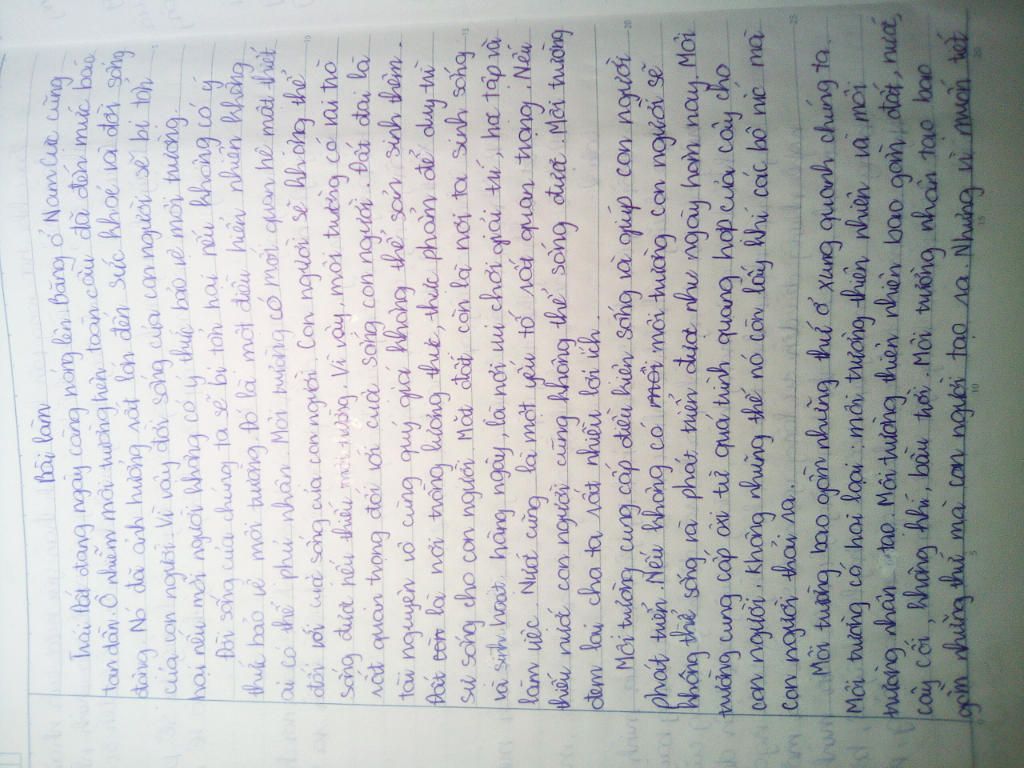 Bài làm
Trái Đất đang ngày càng nóng lên. Băng ở Nam Cực cũng
tan dần. Ô nhiễm môi trường trên toàn cầu đã đến mức báo
động. Nó đã ảnh hưởng rất lớn đến sức khỏe và đời sống
của con người. Vì vậy đời sống của con người sẽ bị tổn
hại nếu mỗi người không có ý thức bảo vệ môi trường.
Đời sống của chúng ta sẽ bị tổn hại nếu không có ý
thức bảo vệ môi trường. Đó là một điều hiển nhiên không
ai có thể phủ nhận. Môi trường có mối quan hệ mật thiết
đối với cuộc sống của con người. Con người sẽ không thể
sống được nếu thiếu môi trường. Vì vậy, môi trường có vai trò
rất quan trọng đối với cuộc sống con người. Đất đai là
tài nguyên vô cùng quý giá không thể sản sinh thêm.
Đất còn là nơi trồng lương thực, thực phẩm để duy trì
sự sống cho con người. Mặt đất còn là nơi ta sinh sống
và sinh hoạt hằng ngày, là nơi vui chơi giải trí, học tập và
làm việc. Nước cũng là một yếu tố rất quan trọng. Nếu
thiếu nước con người cũng không thể sống được. Môi trường
đem lại cho ta rất nhiều lợi ích.
Môi trường cung cấp điều kiện sống và giúp con người
phát triển. Nếu không có môi trường con người sẽ
không thể sống và phát triển được như ngày hôm nay. Môi
trường cung cấp ôxi từ quá trình quang hợp của cây cho
con người. Không những thế nó còn lấy khí các bô níc mà
con người thải ra.
Môi trường bao gồm những thứ ở xung quanh chúng ta.
Môi trường có hai loại: môi trường thiên nhiên và môi
trường nhân tạo. Môi trường thiên nhiên bao gồm, đất, nước,
cây cối, không khí, bầu trời. Môi trường nhân tạo bao
gồm những thứ mà con người tạo ra. Nhưng vì muốn tiết